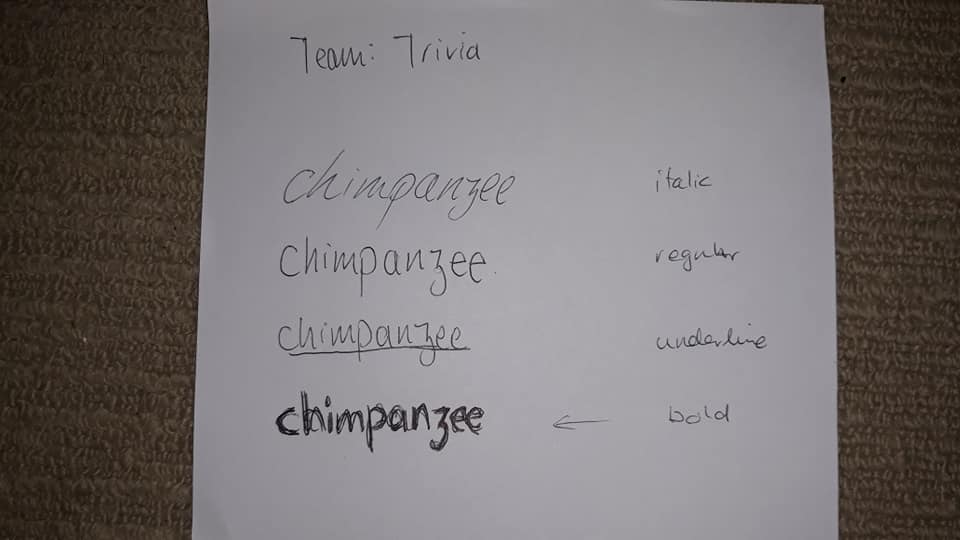 Team: Trivia
chimpanzee italic
chimpanzee regular
chimpanzee underline
chimpanzee ← bold